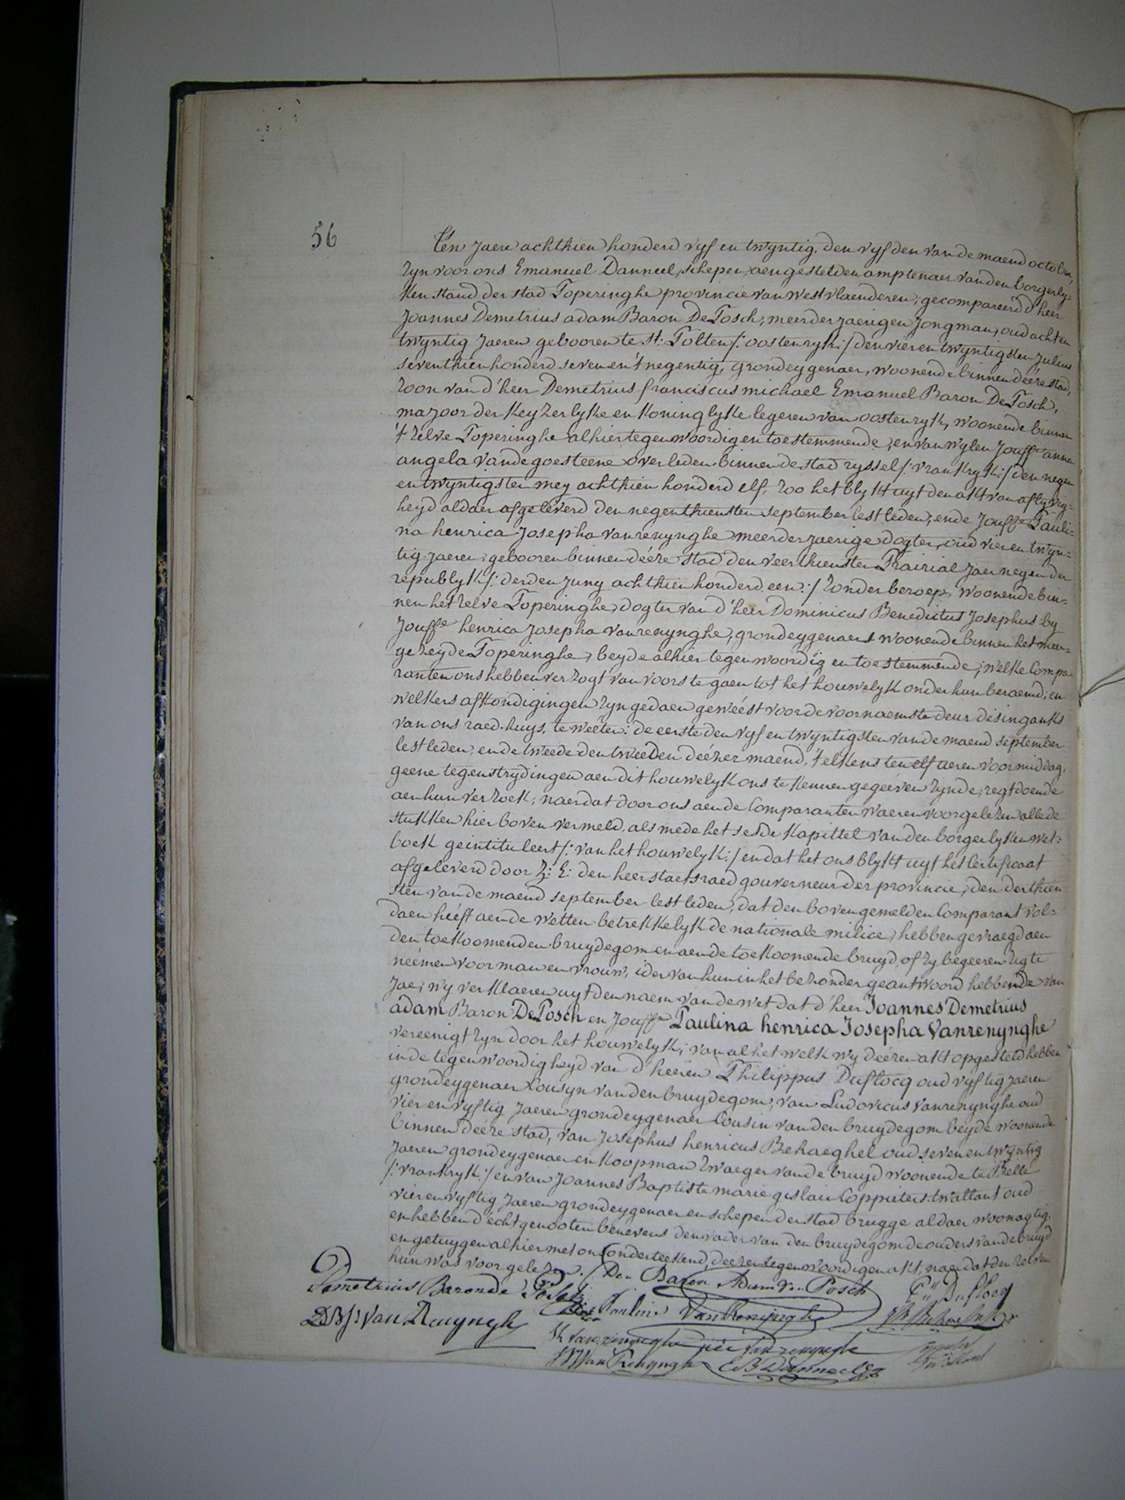 56
Ten Jaere achthien honderd vyf en twyntig, den vyfden van de maend october,
zyn voor ons Emanuel Danneel, schepen, aengestelden amptenaer van den borgerly-
ken stand der stad Poperinghe provincie van westvlaenderen, gecompareerd d'heer
Joannes Demetrius adam Baron DePosch, meerderjaerigen Jongman, oud acht en
twyntig Jaeren gebooren te St: Polten /: oostenryk :/ den vier en twyntigsten Julius
seventhien honderd seven en 't negentig, grondeygenaer, woonende binnen deéze stad,
zoon van d'heer Demetrius franciscus michael Emanuel Baron DePosch,
mazoor der Keyzerlyke en Koninglyke legeren van oostenryk, woonende binnen
't zelve Poperinghe alhier tegenwoordig en toestemmende, en van wylen Jouffe anna
angela vande goesteene overleden binnen de stad ryssel /: vrankryk :/ den negen
en twyntigsten mey achthien honderd elf, zoo het blykt uyt den akt van aflyvig-
heyd aldaer afgeleverd den negenthiensten september lestleden; ende Jouffe Pauli-
na henrica Josepha vanrenynghe meerderjaerige dogter, oud vier en twyn-
tig Jaeren gebooren binnen deéze stad den veerthiensten Prairial Jaer negen der
republyk /: derden Juny achthien honderd een :/ zonder beroep, woonende bin-
nen het zelve Poperinghe, dogter van d'heer Dominicus Benedictus Josephus by
Jouffe henrica Josepha vanrenynghe, grondeygenaers woonende binnen het meer-
gezeyde Poperinghe, beyde alhier tegenwoordig en toestemmende; welke Compa-
ranten ons hebben verzogt van voorste gaen tot het houwelyk onder hun beraemd; en
welkers afkondigingen zyn gedaen geweést voor de voornaemste deur des inganks
van ons raed-huys, te weéten: de eerste den vyf en twyntigsten van de maend september
lestleden; en de tweede den tweéden deézer maend, 't elkens ten elf ueren voormiddag,
geene tegenstrydingen aen dit houwelyk ons te kennen gegeéven zynde, regtdoende
aen hun verzoek; naer dat door ons aen de Comparanten waeren voorgelezen alle de
stukken hier boven vermeld, als mede het sesde Kapittel van den borgerlyken wet-
boek geintituleert /: van het houwelyk :/ en dat het ons blykt uyt het Certificaat
afgeleverd door Z: E: den heer staetsraed gouverneur der provincie, den derthien-
sten van de maend september lestleden, dat den bovengemelden Comparant vol-
daen heéft aen de wetten betrekkelyk de nationale milice; hebben gevraegd aen
den toekoomenden bruydegom en aen de toekoomende bruyd, of zy begeeren zig te
neémen voor man en vrouw, ider van hun in het bezonder geantwoord hebbende van
Jae; wy verklaeren uyt den naem van de wet dat d'heer Joannes Demetrius
adam Baron DePosch en Jouffe Paulina henrica Josepha Vanrenynghe
vereenigt zyn door het houwelyk; van al het welk wy deézen akt opgesteld hebben
in de tegenwoordigheyd van d'heéren Philippus Duflocq oud vyftig Jaeren
grondeygenaer Cousyn van den bruydegom, van Ludovicus vanrenynghe oud
vier en vyftig Jaeren grondeygenaer Cousin van den bruydegom beyde woonende
binnen deéze stad, van Josephus henricus Behaeghel oud seven en twyntig
Jaeren grondeygenaer en Koopman Zwaeger van de bruyd woonende te Belle
/: vrankryk :/ en van Joannes Baptiste marie gislain Coppieters twattant oud
vier en vyftig Jaeren grondeygenaer en schepen der stad brugge aldaer woonagtig;
en hebben d'echtgenooten benevens den vader van den bruydegom de ouders van de bruyd
en getuygen alhier met ons onderteekend, deézen tegenwoordigen akt, naer dat den zelven
hun was voorgelezen. /. Den Baron Adam De Posch
Demetrius Baron de Posch
Pauline Van Renynghe
P. Duflocq
D B Js Van Renynghe
H Vanrenynghe née Vanrenynghe
L Van Renynghe
E Danneel